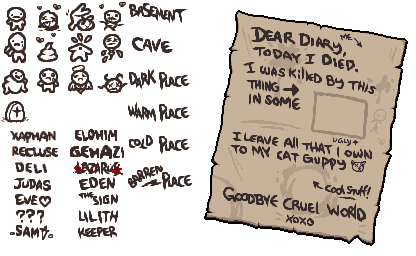 BASEMENT
CAVE
DARK PLACE
WARM PLACE
COLD PLACE
BARREN PLACE
XAPHAN
RECLUSE
DELI
JUDAS
EVE♡
???
-SAM?-
ELOHIM
GEMAZI
LAZARUS
EDEN
THE SIGN
LILITH
KEEPER
ME
DEAR DIARY,
TODAY I DIED.
I WAS KILLED BY THIS
THING →
IN SOME
UGLY↑
I LEAVE ALL THAT I OWN
TO MY CAT GUPPY
↖ COOL STUFF!
GOODBYE CRUEL WORLD
XOXO